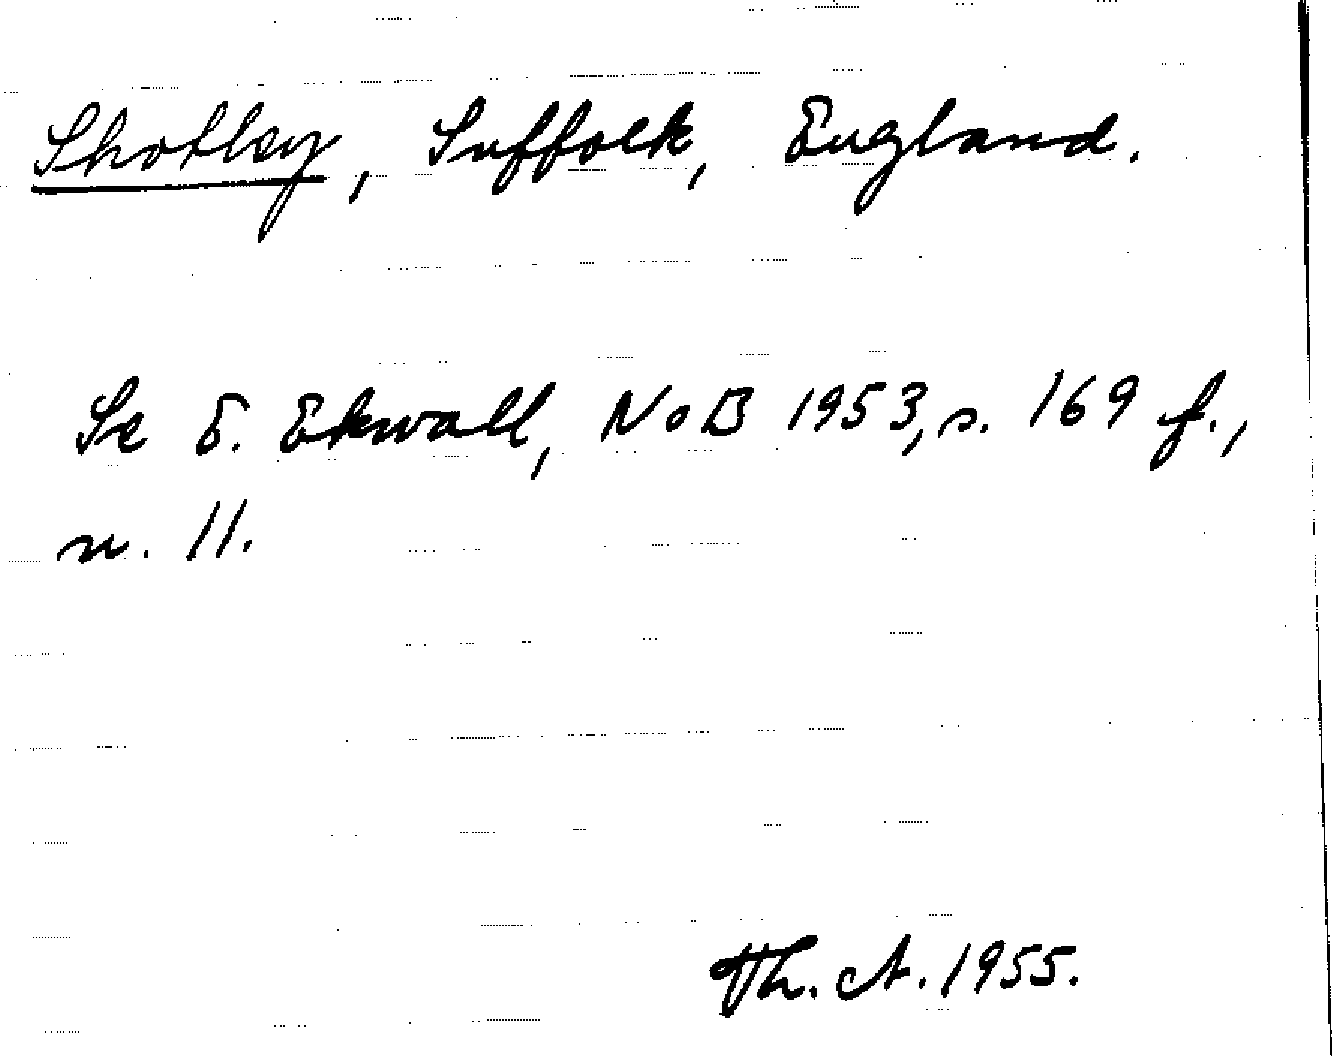 Shotley, Suffolk, England.
Se E. Ekwall, NoB 1953, s. 169 f.,
n. 11.
Th. A. 1955.